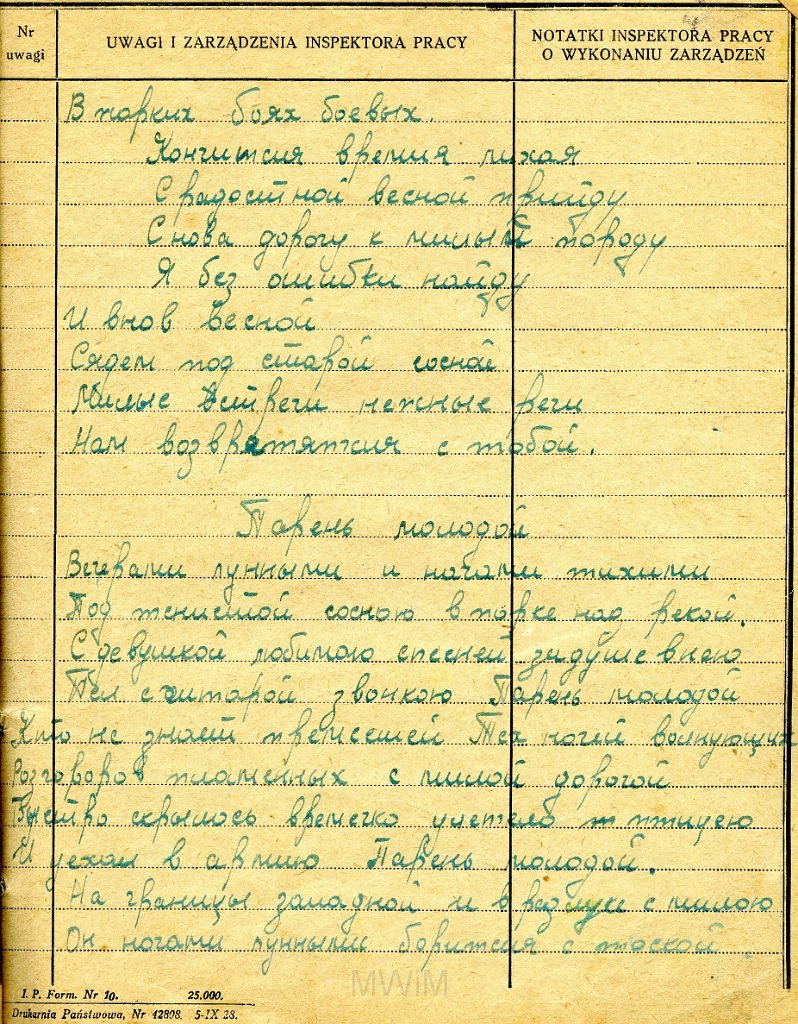 Nr uwagi
UWAGI I ZARZĄDZENIA INSPEKTORA PRACY
NOTATKI INSPEKTORA PRACY
O WYKONANIU ZARZĄDZEŃ
В жарких боях боевых.
Кончится время лихая
С радостной весной прийду
Снова дорогу к милый городу
Я без ошибки найду
И внов весной
Сядем под старой сосной
Милые встречи нежные речи
Нам возвратятся с тобой.
Парень молодой
Вечерами лунными и ночами тихими
Под тенистой сосною в парке над рекой.
С девушкой любимою спесней задушевною
Пел с гитарой звонкою Парень молодой
Кто не знает Тех ночей волнующих
Розговоров пламенных с милой дорогой
Быстро скрылось времечко улетело птицею
И уехал в армию Парень молодой.
На границы западной и в разлуке с милою
Он ночами лунными борится с тоской.
I. P. Form. Nr 10. 25.000.
Drukarnia Państwowa, Nr 42898. 5-IX 28.
MWiM